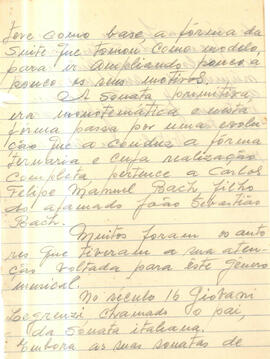 teve como base, a fórma da
Suite que tomou como modelo,
para ir ampliando pouco a
pouco os seus motivos.
A Sonata primitiva
era monotemática e nesta
fórma passa por uma evolu-
ção que a conduz a fórma
ternaria e cuja realização
completa pertence a Carlos
Felipe Manuel Bach, filho
do afamado João Sebastião
Bach.
Muitos foram os auto-
res que tiveram a sua aten-
ção voltada para êste gênero
musical.
No século 16 Giovani
Legrenzi, chamado o pai,
da Sonata italiana.
Embora as suas sonatas de